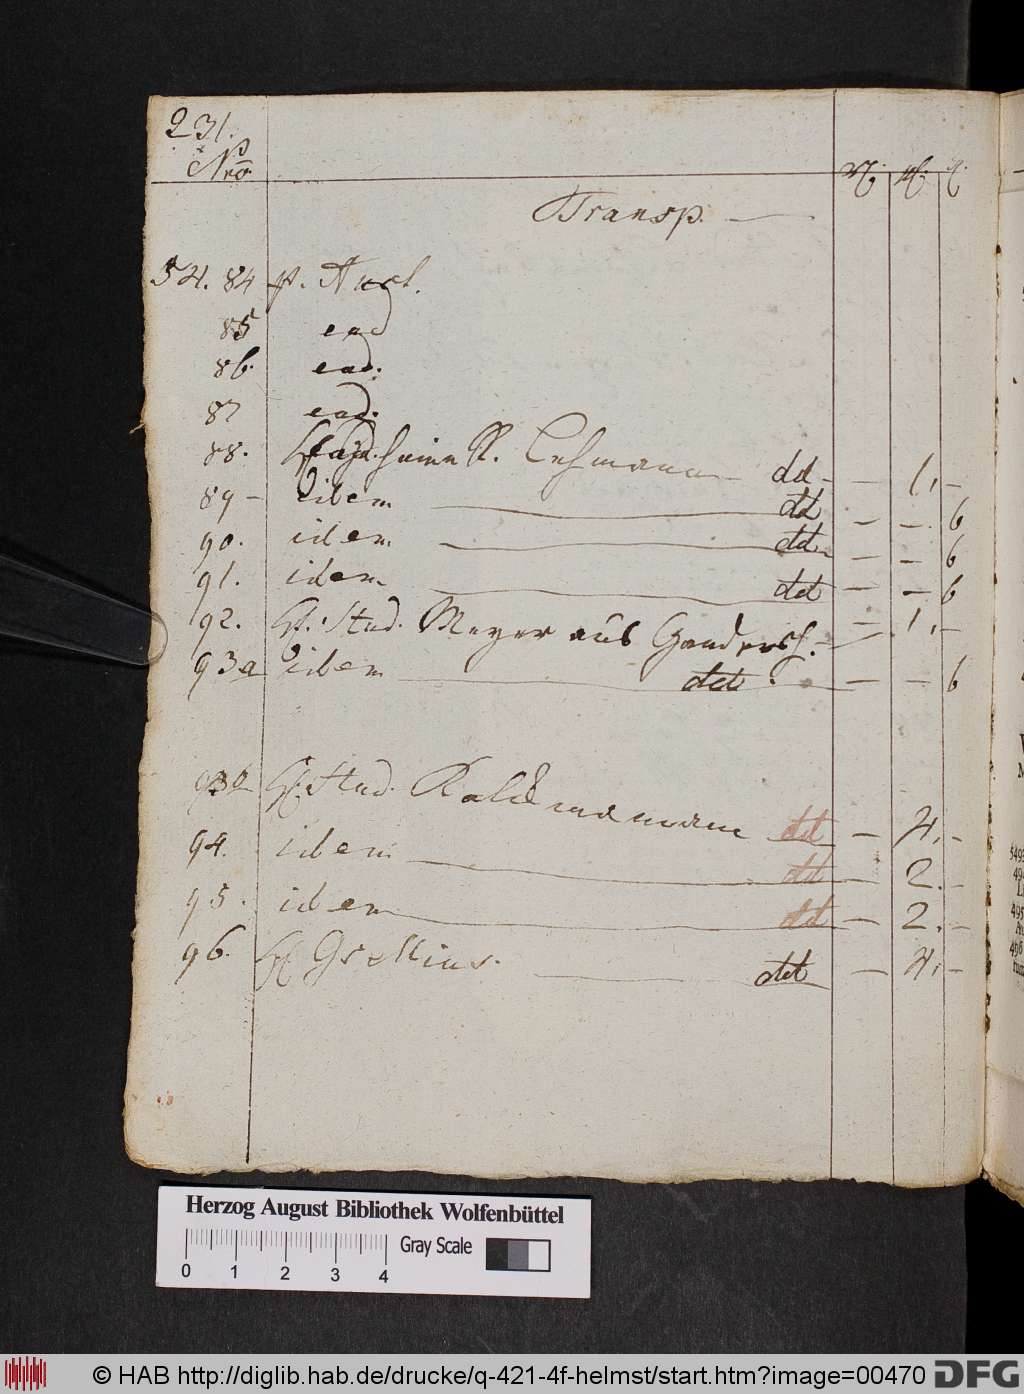 231.
Nro.
Transp.
54. 84 p. Auct.
85 ead
86. ead.
87 ead.
88. Lehmann dd - - 1. -
89 - idem dd - - 6
90. idem dd - - 6
91. idem ddt - - 6
92. H. Stud. Meyer aus Gandersh. - 1. -
93a idem ddt. - - 6
93b H. Stud. Kaldtmamann ddt - 4. -
94. idem dd - 2. -
95. idem dd - 2. -
96. H Grellius. ddt - 4. -
Herzog August Bibliothek Wolfenbüttel
Gray Scale
0 1 2 3 4
© HAB http://diglib.hab.de/drucke/q-421-4f-helmst/start.htm?image=00470 DFG